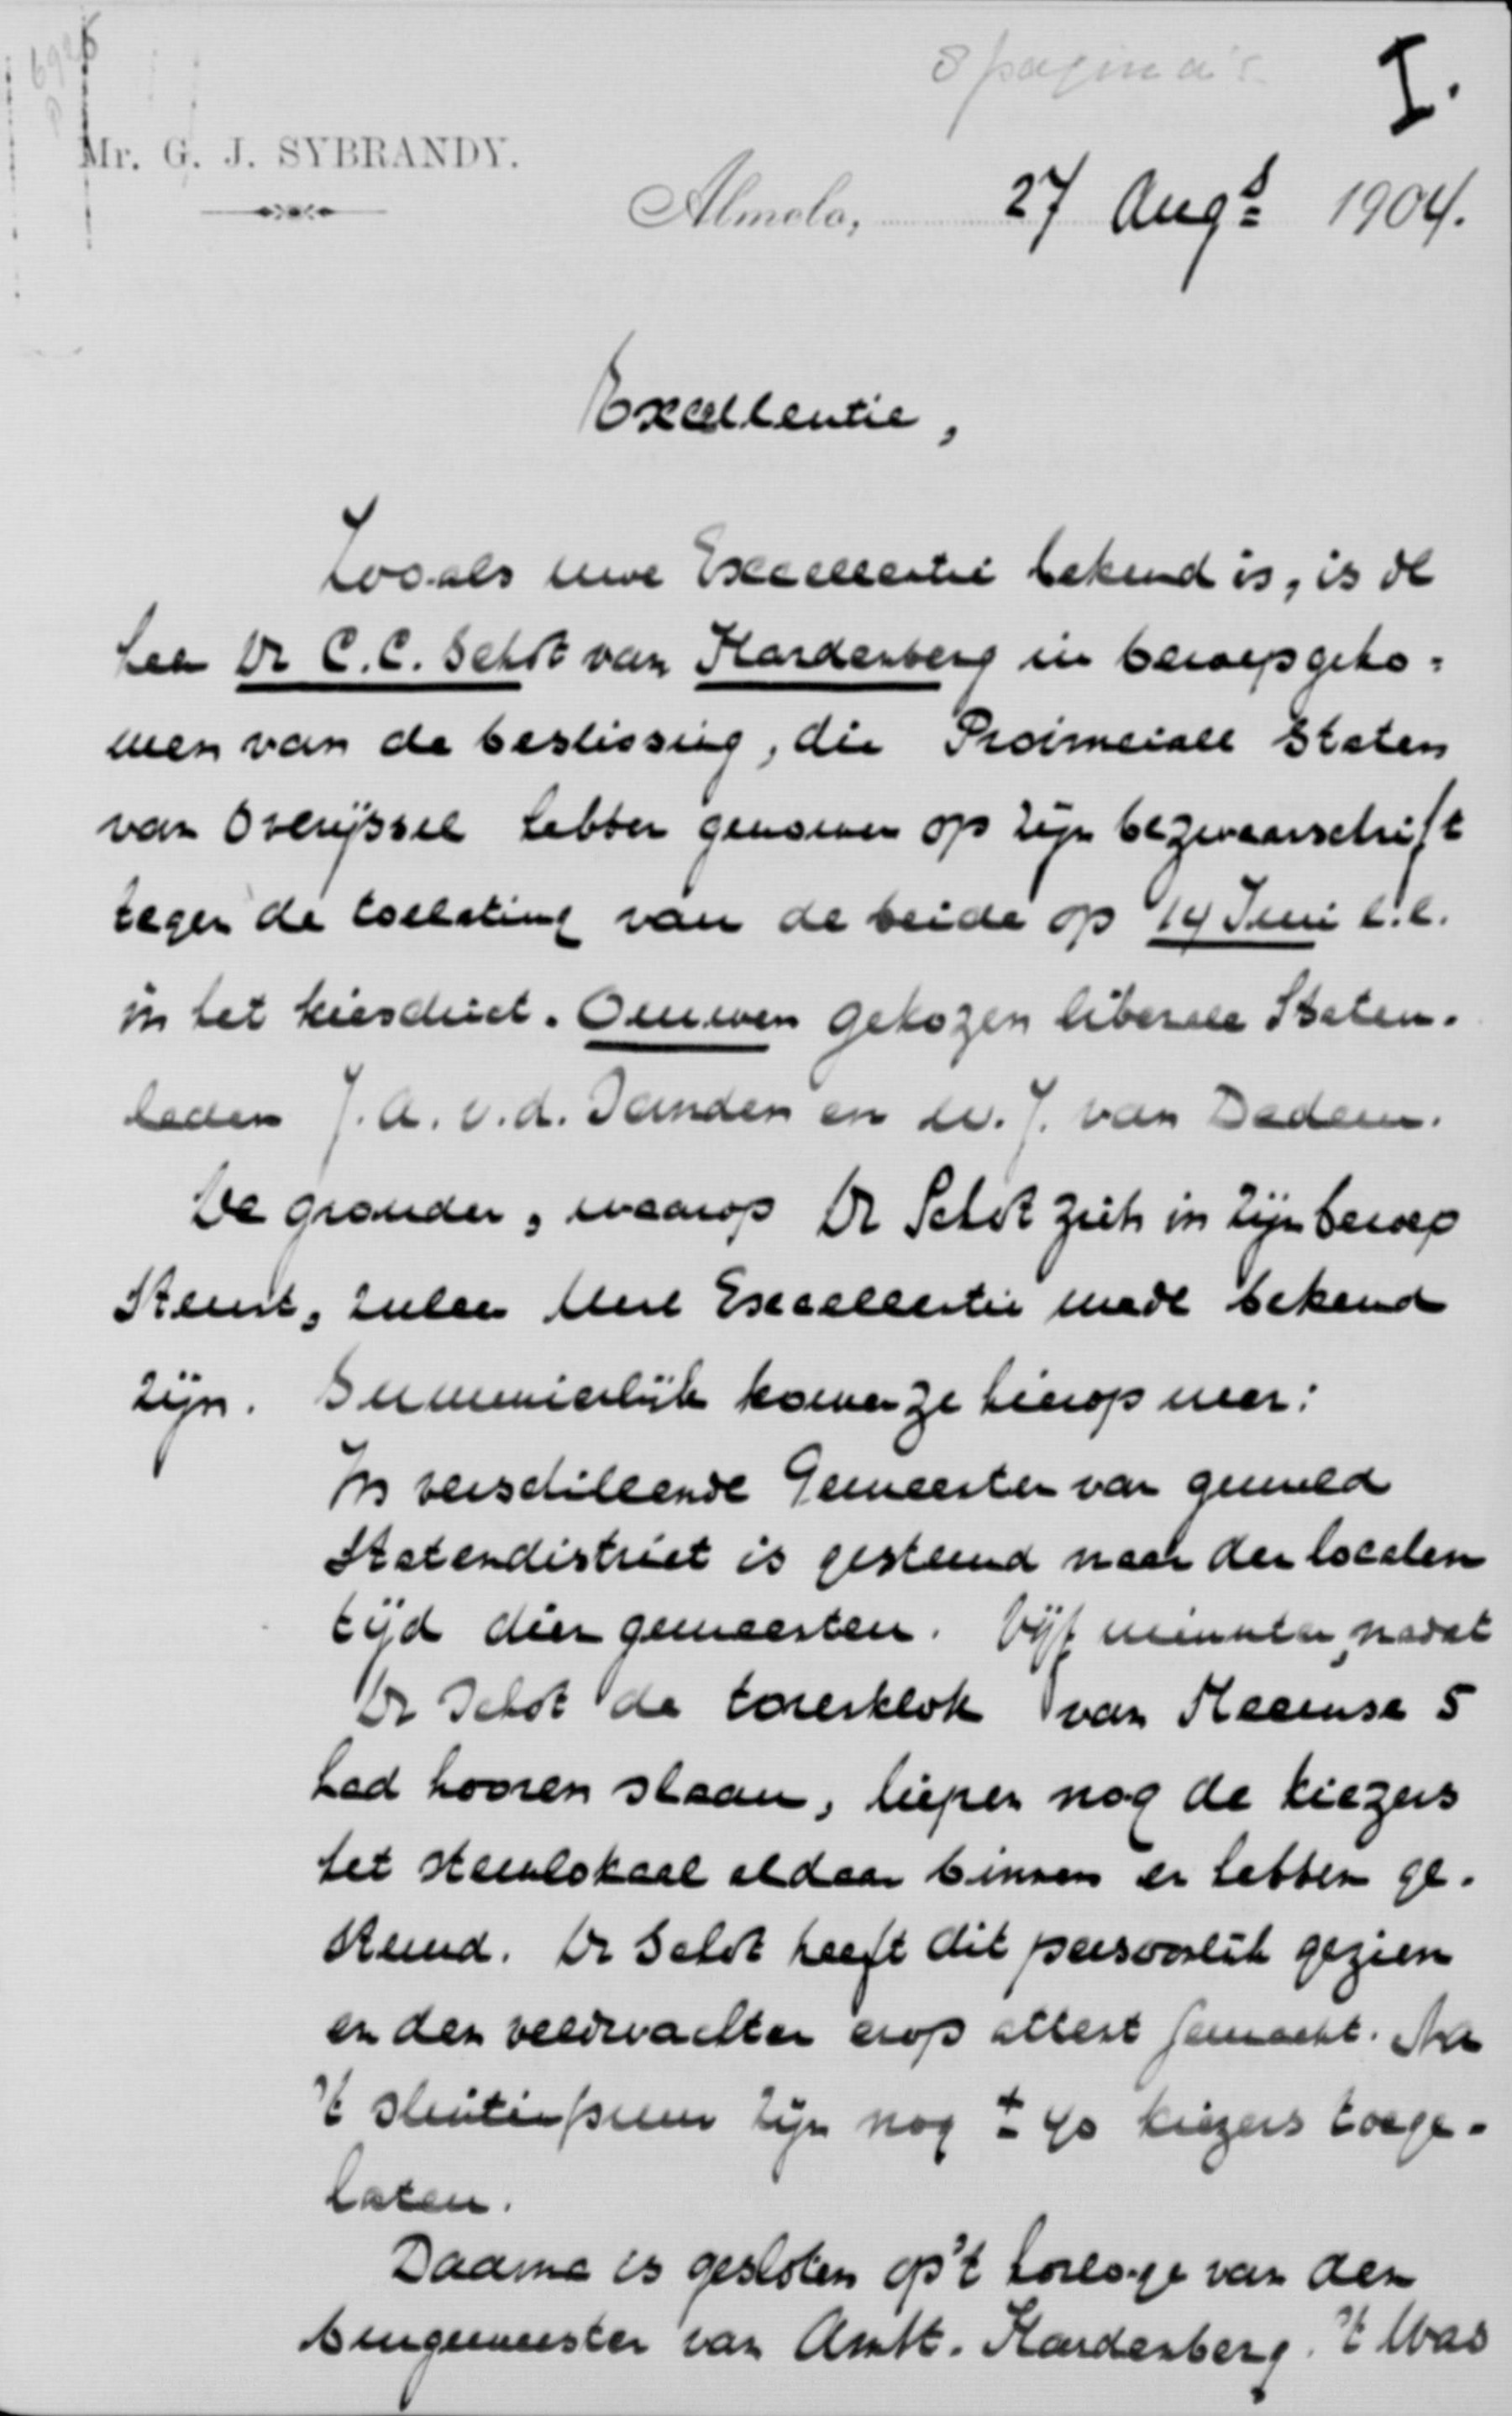 8 pagina's
I.
Mr. G. J. SYBRANDY.
Almelo, 27 Augs 1904.
Excellentie,
Zooals uwe Excellentie bekend is, is de
heer Dr C. C. Schot van Hardenberg in beroep geko-
men van de beslissing, die Provinciale Staten
van Overijssel hebben genomen op zijn bezwaarschrift
tegen de toelating van de beide op 14 Juni l.l.
in het kiesdistrict. Ommen gekozen liberale Staten-
leden J. A. v. d. Sanden en W. J. van Dedem.
De gronden, waarop Dr Schot zich in zijn beroep
steunt, zullen Uwe Excellentie mede bekend
zijn. Summierlijk komen ze hierop neer:
In verschillende Gemeenten van gemeld
Statendistrict is gestemd naar den localen
tijd dier gemeenten. Vijf minuten, nadat
Dr Schot de torenklok van Heemse 5
had hooren slaan, liepen nog de kiezers
het stemlokaal aldaar binnen en hebben ge-
stemd. Dr Schot heeft dit persoonlijk gezien
en den veldwachter erop attent gemaakt. Na
't sluitingsuur zijn nog ± 40 kiezers toege-
laten.
Daarna is gesloten op 't horloge van den
burgemeester van Ambt. Hardenberg. 't Was